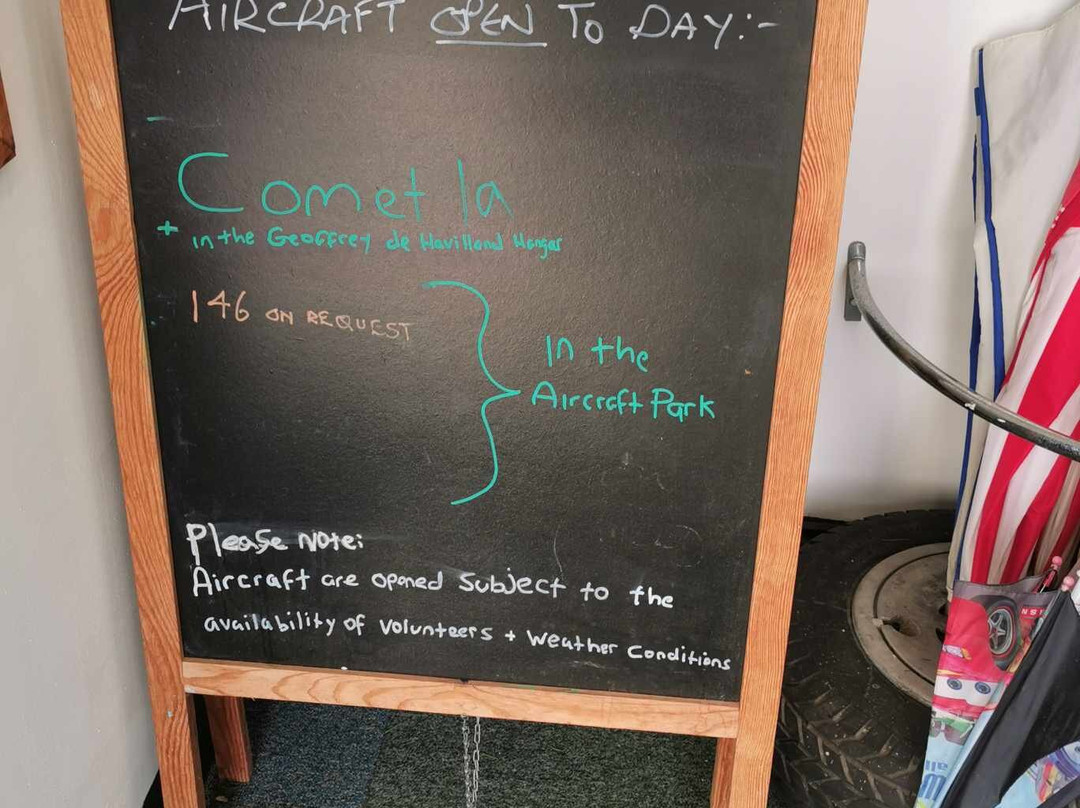 AIRCRAFT OPEN TO DAY:-
Comet 1a
+ in the Geoffrey de Havilland Hangar
146 ON REQUEST
In the
Aircraft Park
Please Note:
Aircraft are opened subject to the
availability of volunteers + Weather Conditions